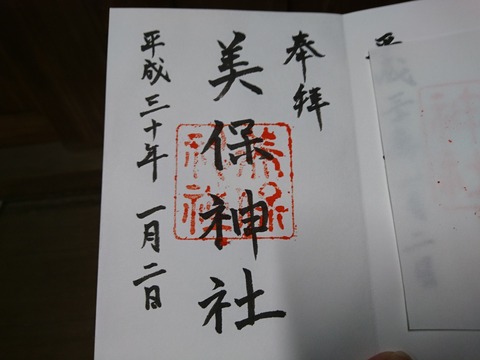 奉拝
美保神社
平成三十年 一月二日
美保神社